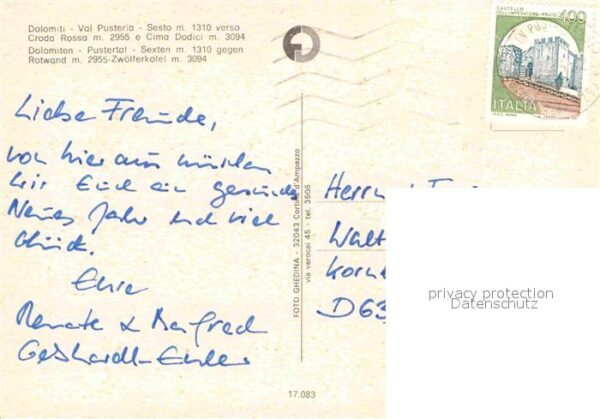 Dolomiti - Val Pusteria - Sesto m. 1310 verso
Croda Rossa m. 2955 e Cima Dodici m. 3094
Dolomiten - Pustertal - Sexten m. 1310 gegen
Rotwand m. 2955-Zwölferkofel m. 3094
CASTELLO
DELL'IMPERATORE - PRATO
400
ITALIA
Liebe Freunde,
von hier aus wünschen
wir Euch ein gesundes
Neues Jahr und viel
Glück.
Eure
Renate & Manfred
Gebhardt-Euler
FOTO GHEDINA - 32043 Cortina d'Ampezzo
via verocai 45 - tel. 3505
Herrn
Walt
Korn
D63
privacy protection
Datenschutz
17.083